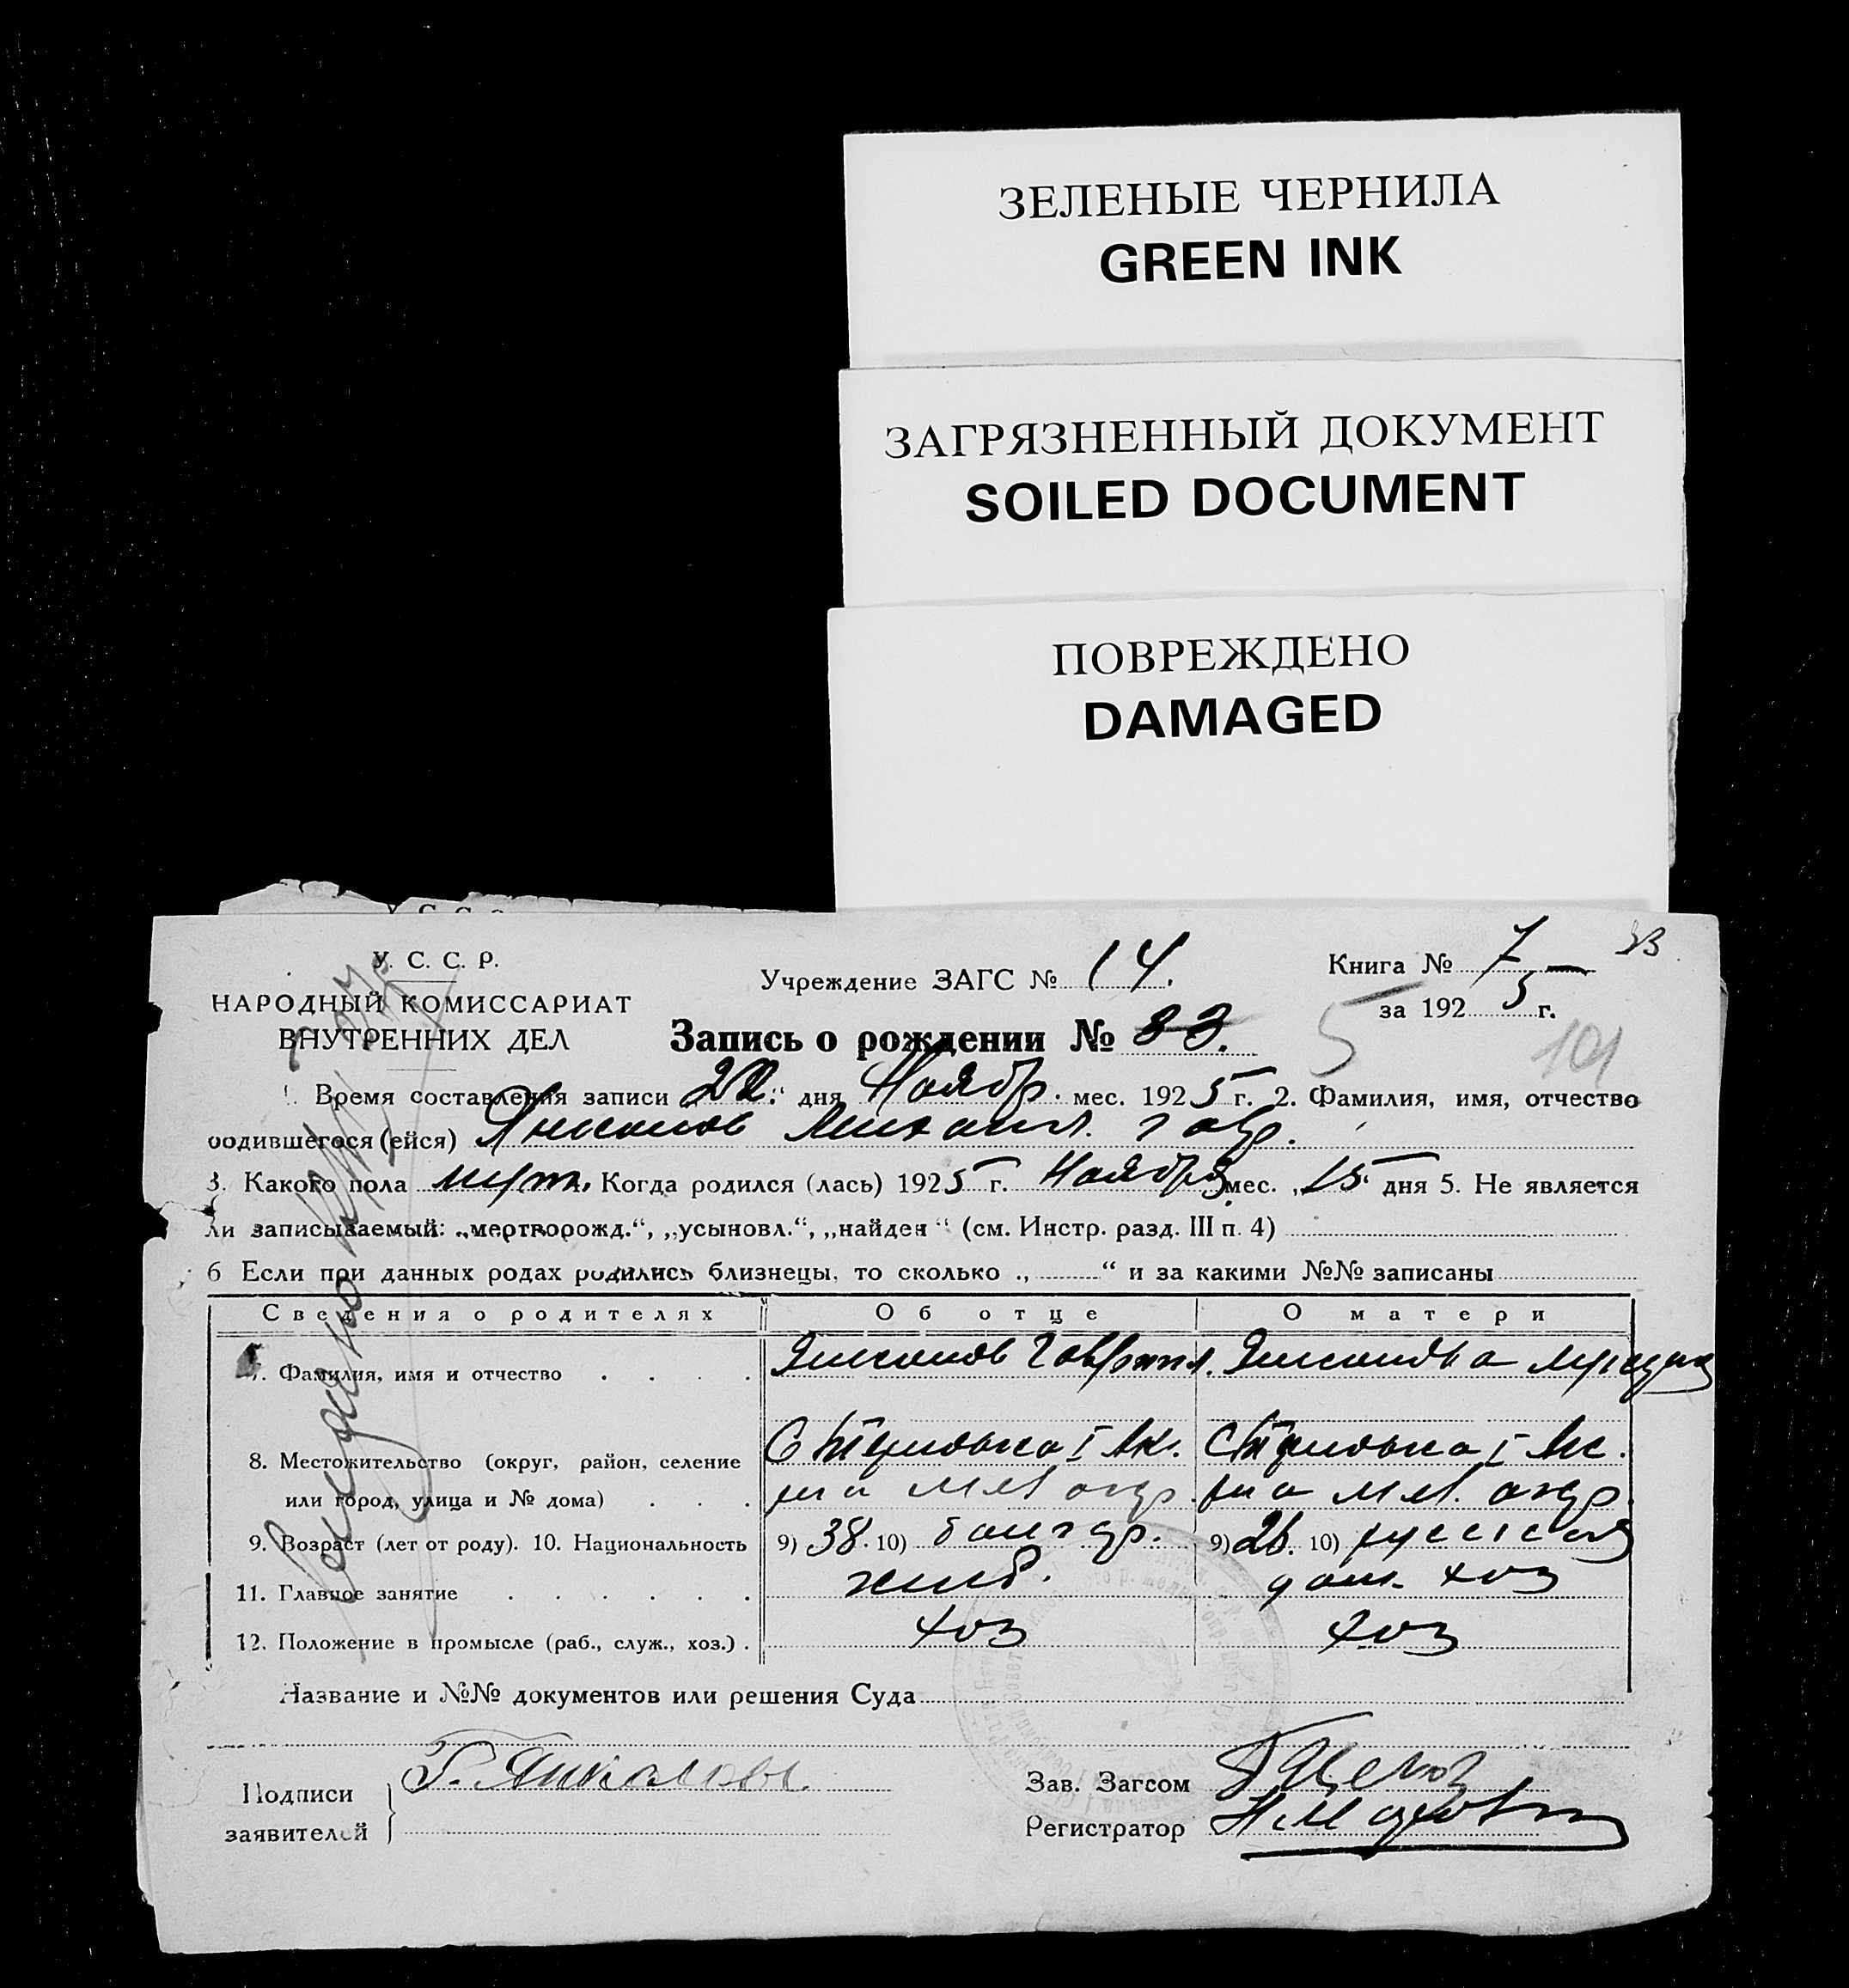 ЗЕЛЕНЫЕ ЧЕРНИЛА
GREEN INK
ЗАГРЯЗНЕННЫЙ ДОКУМЕНТ
SOILED DOCUMENT
ПОВРЕЖДЕНО
DAMAGED
У. С. С. Р.
НАРОДНЫЙ КОМИССАРИАТ
ВНУТРЕННИХ ДЕЛ
Учреждение ЗАГС № 14.
Книга № 7
за 1925 г.
5
101
Запись о рождении № 33.
1. Время составления записи „22“ дня Ноябр. мес. 1925 г. 2. Фамилия, имя, отчество
родившегося (ейся) Михаил. Гавр.
3. Какого пола муж. Когда родился (лась) 1925 г. Ноября мес. „15 дня 5. Не является
ли записываемый: „мертворожд.“, „усыновл.“, „найден“ (см. Инстр. разд. III п. 4)
6 Если при данных родах родились близнецы, то сколько „ “ и за какими №№ записаны
Сведения о родителях Об отце О матери
7. Фамилия, имя и отчество Гавриил.
8. Местожительство (округ, район, селение
или город, улица и № дома)
9. Возраст (лет от роду). 10. Национальность 9) 38. 10) болгар. 9) 26. 10) русская
11. Главное занятие хлеб. дом. хоз
12. Положение в промысле (раб., служ., хоз.) хоз хоз
Название и №№ документов или решения Суда
Подписи
заявителей
Зав. Загсом
Регистратор